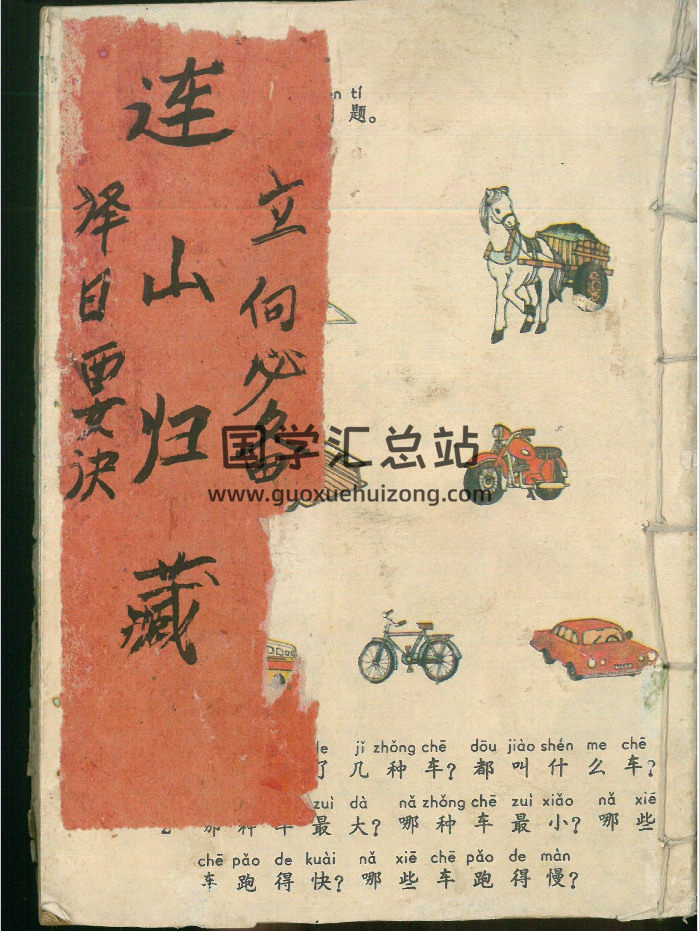 tí
题。
立向必备
连山归藏
择日要决
国学汇总站
www.guoxuehuizong.com
le jǐ zhǒng chē dōu jiào shén me chē
了几种车？都叫什么车？
zuì dà nǎ zhǒng chē zuì xiǎo nǎ xiē
哪种车最大？哪种车最小？哪些
chē pǎo de kuài nǎ xiē chē pǎo de màn
车跑得快？哪些车跑得慢？